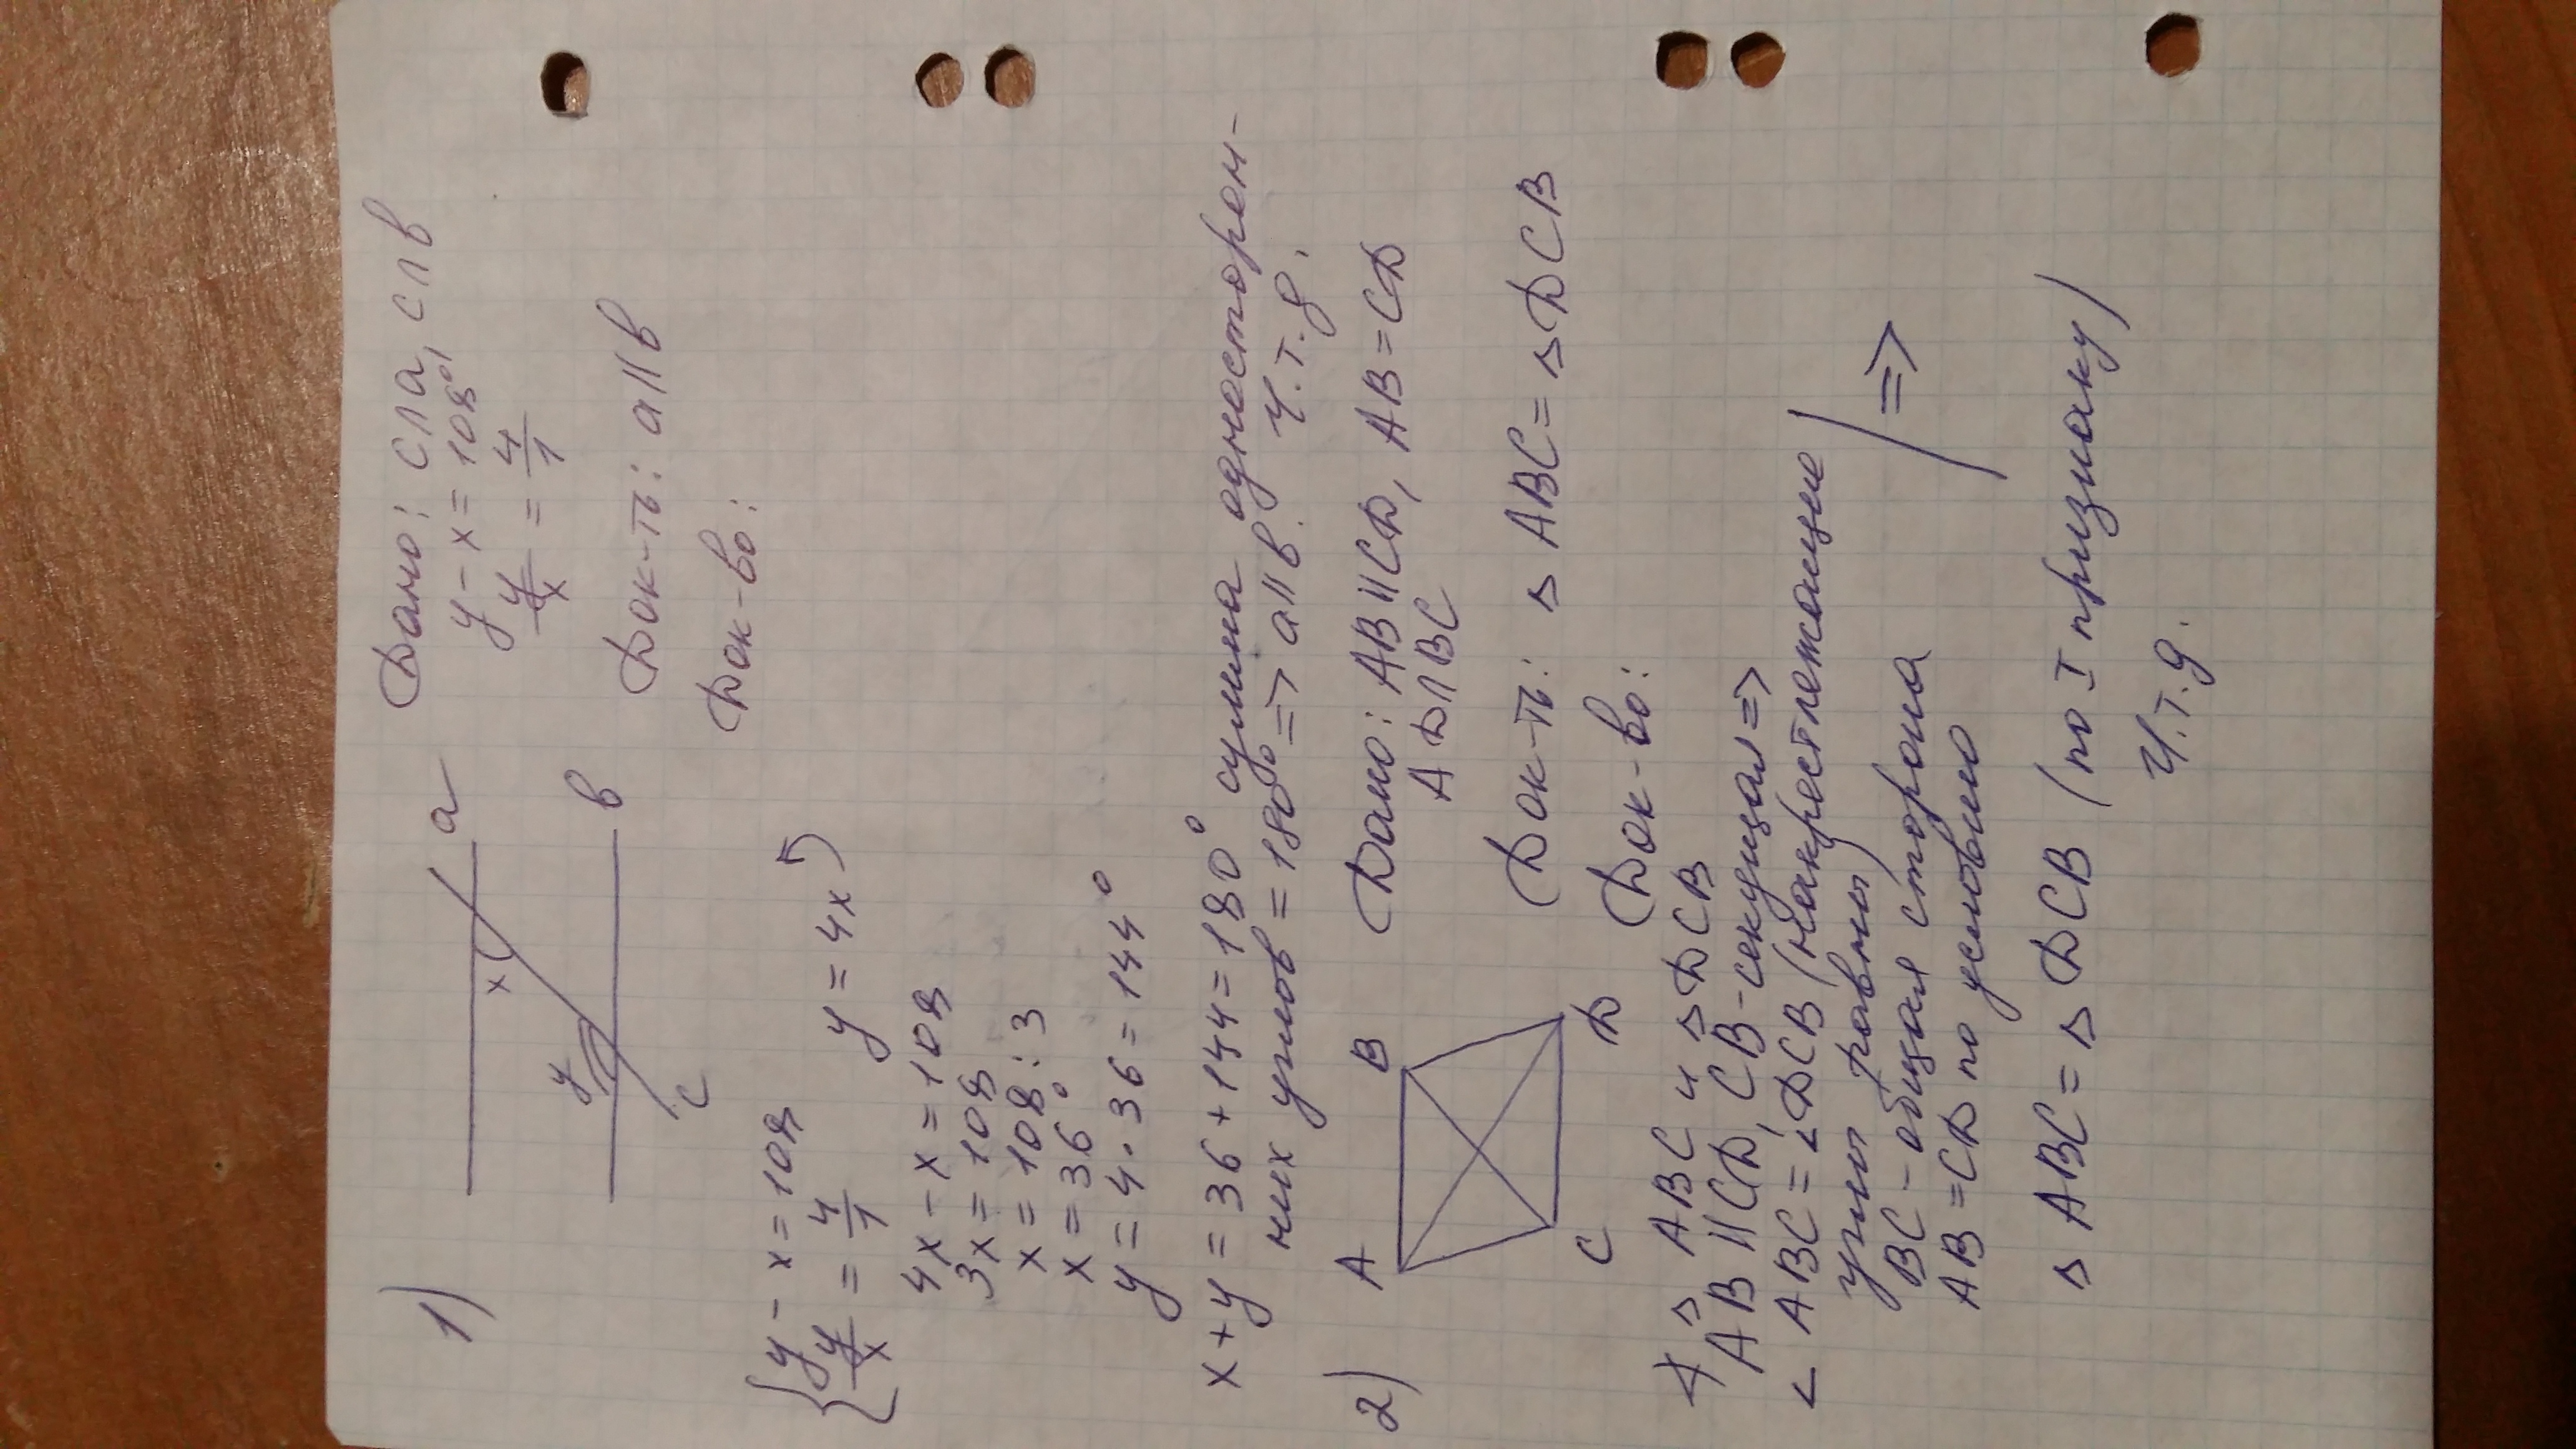 1)
a
x
y
в
c
Дано: c∩a, c∩в
y - x = 108°,
y/x = 4/1
Док-ть: a||в
Док-во:
{ y - x = 108
y/x = 4/1 y = 4x
4x - x = 108
3x = 108
x = 108 : 3
x = 36°
y = 4 · 36 = 144°
x + y = 36 + 144 = 180° сумма односторон-
них углов = 180° => a||в. Ч.т.д.
2)
A B
C D
Дано: AB||CD, AB = CD
AD∩BC
Док-ть: ▵ABC = ▵DCB
Док-во:
▵ABC и ▵DCB
AB||CD, CB - секущая =>
∠ABC = ∠DCB (накрестлежащие
углы равны)
BC - общая сторона
AB = CD по условию
=>
▵ABC = ▵DCB (по I признаку)
Ч.т.д.